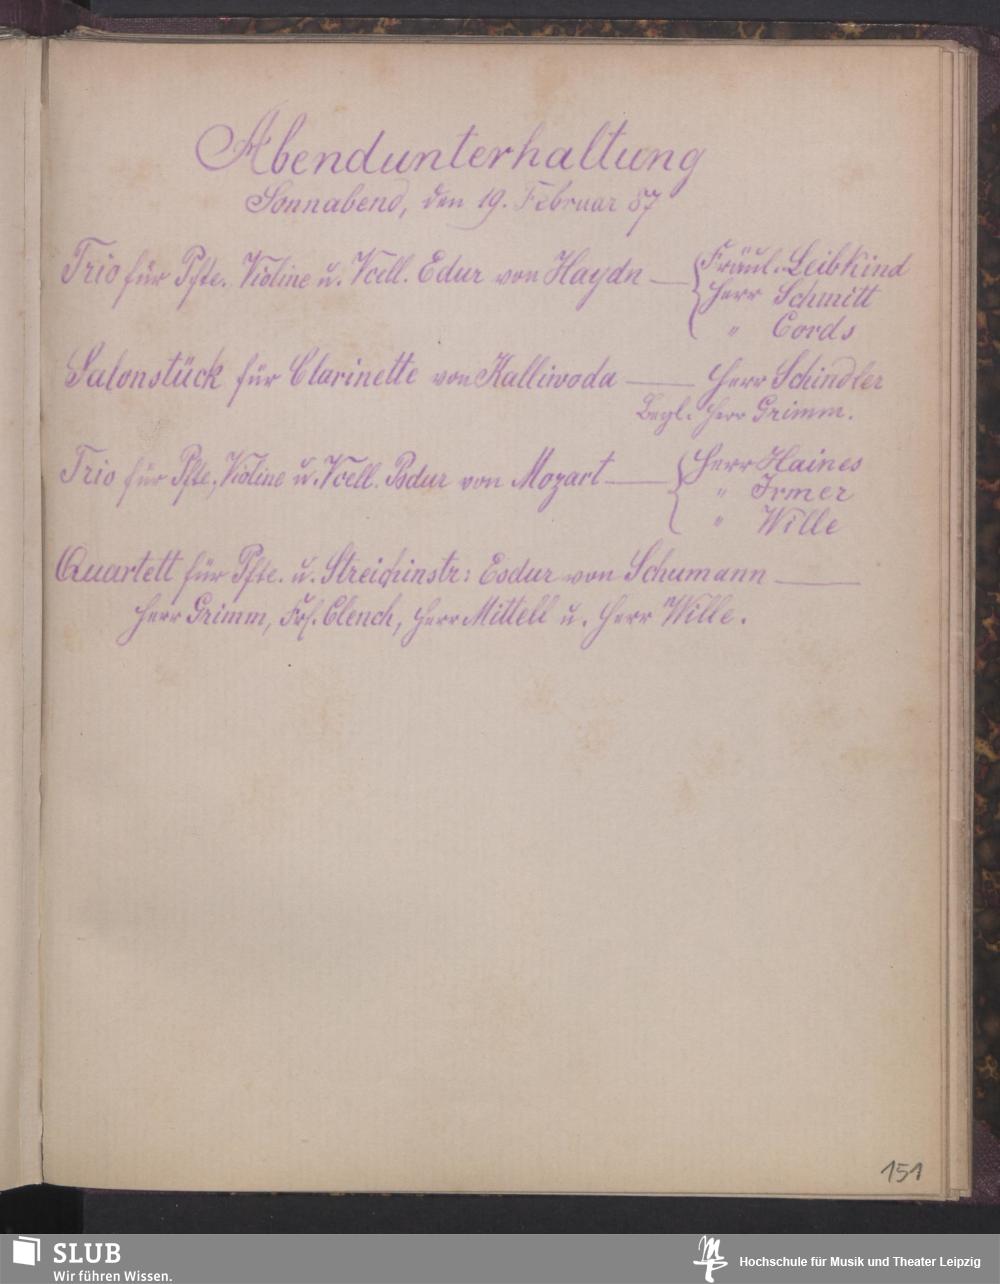 Abendunterhaltung
Sonnabend, den 19. Februar 87
Trio für Pfte. Violine u. Vcell. Edur von Haydn — Fräul. Leibkind
Herr Schmitt
" Cords
Salonstück für Clarinette von Kalliwoda — Herr Schindler
Begl. Herr Grimm.
Trio für Pfte, Violine u. Vcell. Bdur von Mozart — Herr Haines
" Irmer
" Wille
Quartett für Pfte. u. Streichinstr: Esdur von Schumann —
Herr Grimm, Frl. Clench, Herr Mittell u. Herr Wille.
151
SLUB
Wir führen Wissen.
Hochschule für Musik und Theater Leipzig